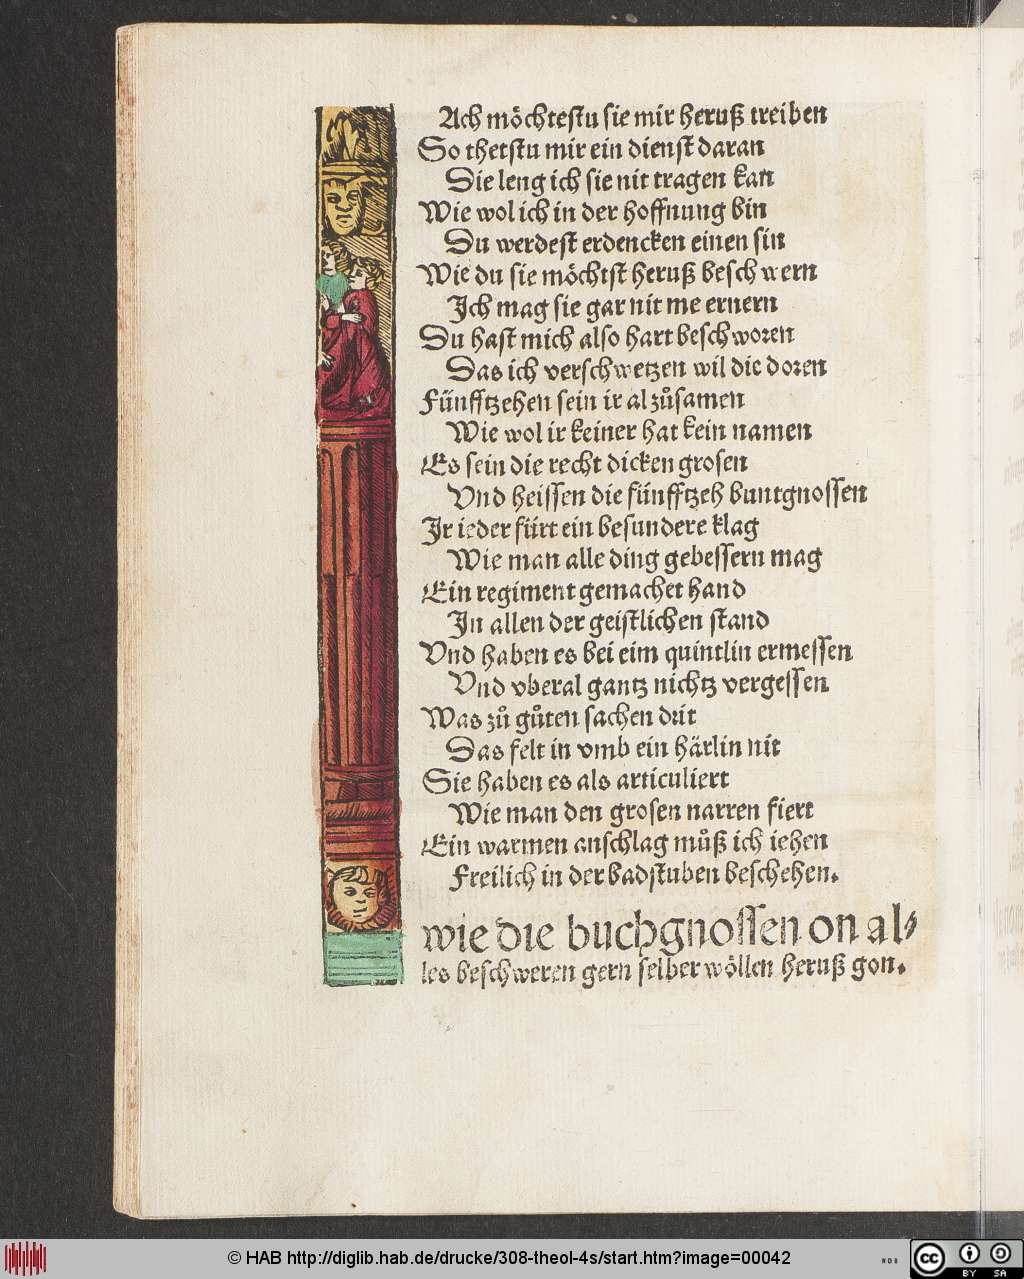 Ach möchtestu sie mir heruß treiben
So thetstu mir ein dienst daran
Die leng ich sie nit tragen kan
Wie wol ich in der hoffnung bin
Du werdest erdencken einen sin
Wie du sie möchtst heruß beschwern
Ich mag sie gar nit me ernern
Du hast mich also hart beschworen
Das ich verschwetzen wil die doren
Fünfftzehen sein ir al zůsamen
Wie wol ir keiner hat kein namen
Es sein die recht dicken grosen
Vnd heissen die fünfftzeh buntgnossen
Ir ieder fürt ein besundere klag
Wie man alle ding gebessern mag
Ein regiment gemachet hand
In allen der geistlichen stand
Vnd haben es bei eim quintlin ermessen
Vnd vberal gantz nichtz vergessen
Was zů gůten sachen drit
Das felt in vmb ein härlin nit
Sie haben es als articuliert
Wie man den grosen narren fiert
Ein warmen anschlag můß ich iehen
Freilich in der badstuben beschehen.
wie die buchgnossen on al⸗
les beschweren gern selber wöllen heruß gon.
© HAB http://diglib.hab.de/drucke/308-theol-4s/start.htm?image=00042
WDB
cc BY SA